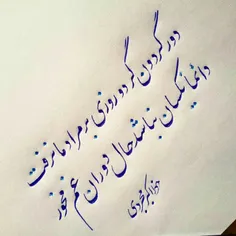 دور گردون گر دو روزی بر مراد ما نرفت
دائما یکسان نباشد حال دوران غم مخور